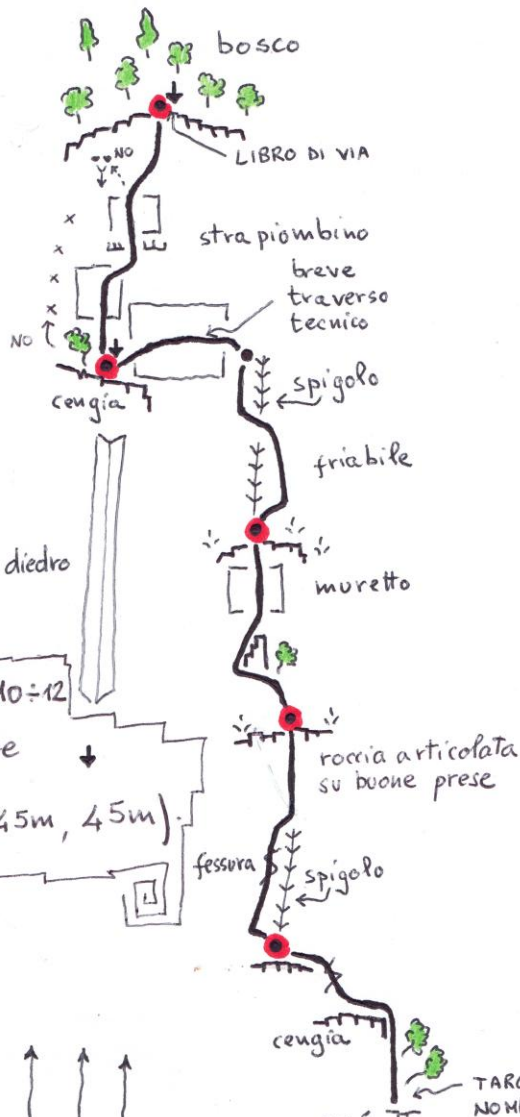 bosco
NO
LIBRO DI VIA
strapiombino
breve
traverso
tecnico
NO
cengia
spigolo
friabile
diedro
muretto
10÷12
e
45m, 45m).
roccia articolata
su buone prese
fessura
spigolo
cengia
TARG
NOM